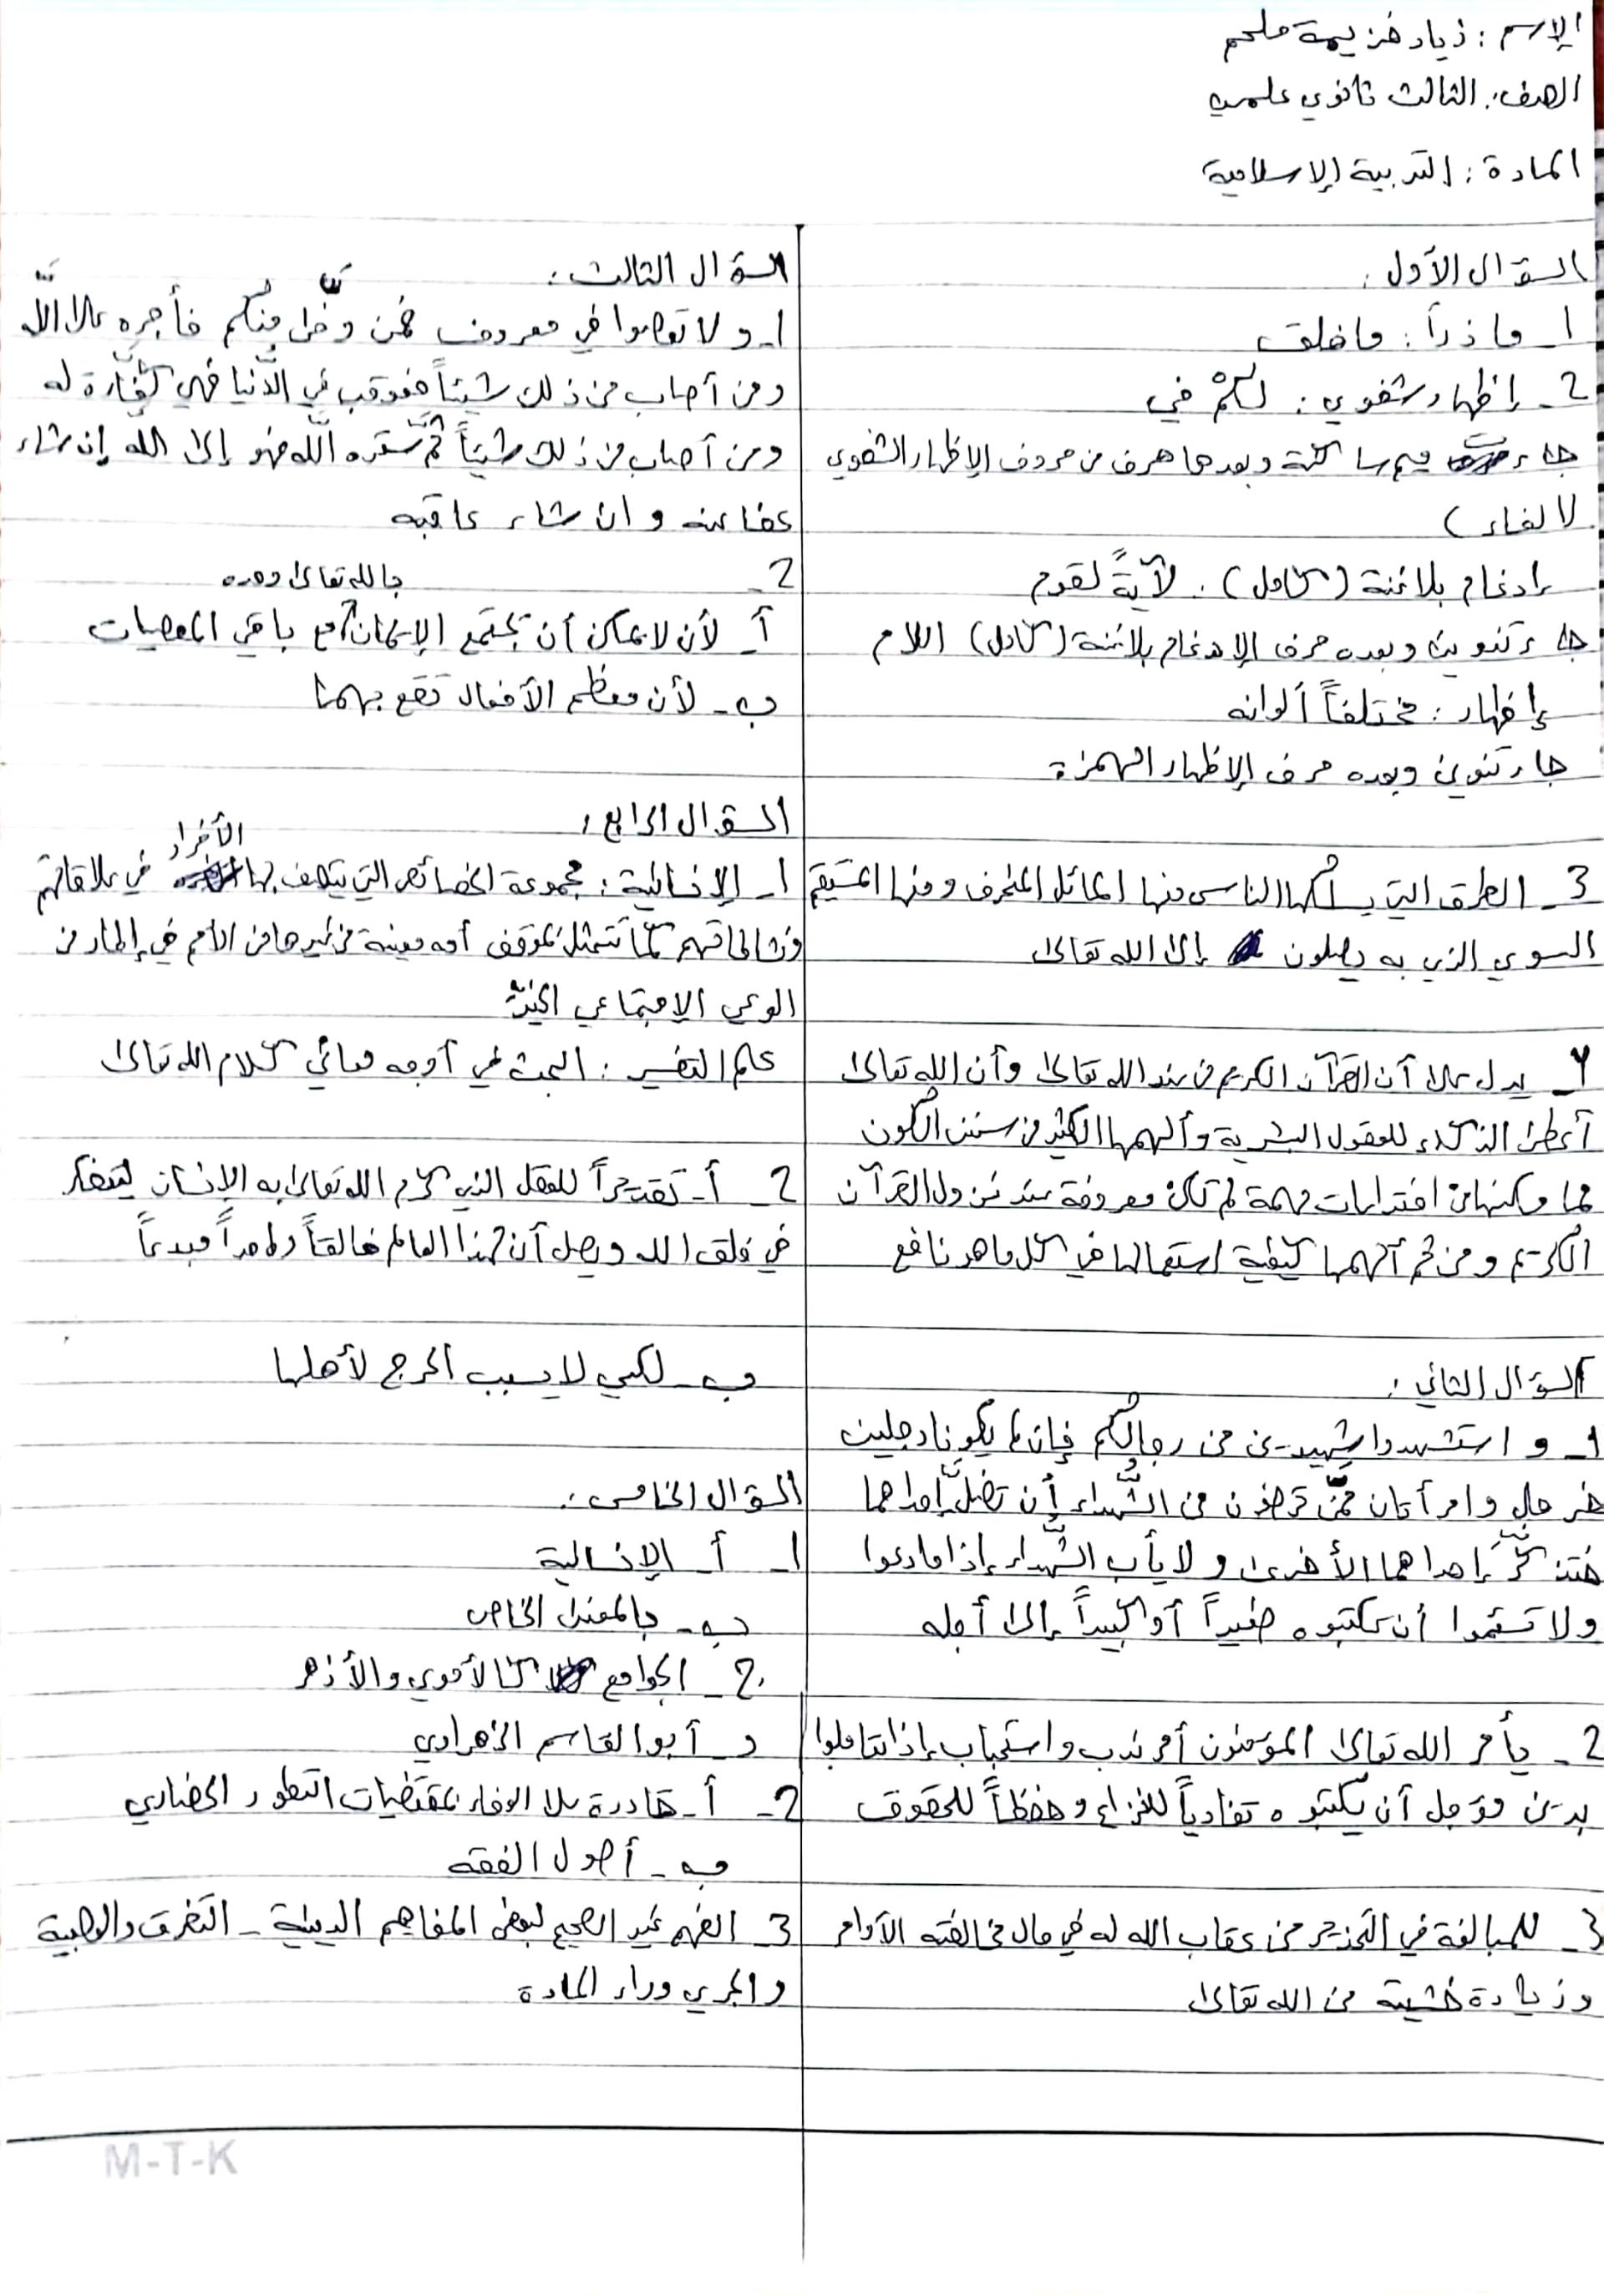 الإسم : زياد خزيمة ملحم
الصف : الثالث ثانوي علمي
المادة : التربية الإسلامية
السؤال الأول :
1_ ما ذرأ : ما خلق
2_ إظهار شفوي : لكمْ في
جاء ميم ساكنة وبعدها حرف من حروف الإظهار الشفوي
(الفاء)
إدغام بلا غنة (كامل) : لآيةً لقوم
جاء تنوين وبعده حرف الإدغام بلا غنة (كامل) اللام
إظهار : مختلفاً ألوانه
جاء تنوين وبعده حرف الإظهار الهمزة
3_ الطرق التي يسلكها الناس منها المائل المنحرف ومنها المستقيم
السوي الذي به يصلون إلى الله تعالى
4_ يدل على أن القرآن الكريم من عند الله تعالى وأن الله تعالى
أعطى الذكاء للعقول البشرية وألهمها الكثير من سنن الكون
مما مكنها من اختراعات مهمة لم تكن معروفة عند نزول القرآن
الكريم ومن ثم ألهمها كيفية استعمالها في كل ما هو نافع
السؤال الثاني :
1_ و استشهدوا شهيدين من رجالكم فإن لم يكونا رجلين
فرجل وامرأتان ممّن ترضون من الشّهداء أن تضلّ إحداهما
فتذكّر إحداهما الأخرى ولا يأب الشّهداء إذا ما دعوا
ولا تسئموا أن تكتبوه صغيراً أو كبيراً إلى أجله
2_ يأمر الله تعالى المؤمنون أمر ندب واستحباب إذا تعاملوا
بدين مؤجل أن يكتبوه تفادياً للنزاع وحفظاً للحقوق
3_ للمبالغة في التحذير من عقاب الله له في حال مخالفته الأوامر
وزيادة خشيته من الله تعالى
السؤال الثالث :
1_ ولا تعصوا في معروف فمن وفّى منكم فأجره على اللّه
ومن أصاب من ذلك شيئاً فعوقب في الدّنيا فهي كفّارة له
ومن أصاب من ذلك شيئاً ثمّ ستره اللّه فهو إلى الله إن شاء
عفا عنه وان شاء عاقبه
2_
أ_ لأن لا يمكن أن يجتمع الإيمان بالله تعالى وحده مع باقي المعصيات
ب_ لأن معظم الأفعال تقع بهما
السؤال الرابع :
1_ الإنسانية : مجموعة الخصائص التي يتصف بها الأفراد في علاقاتهم
ونشاطاتهم كما تتمثل بموقف أمه معينة من غيرها من الأمم في إطار من
الوعي الاجتماعي الخيّر
علم التفسير : البحث في أوجه معاني كلام الله تعالى
2_ أ_ تقديراً للعقل الذي كرم الله تعالى به الإنسان ليتفكر
في خلق الله ويصل أن لهذا العالم خالقاً واحداً مبدعاً
ب_ لكي لا يسبب الحرج لأهلها
السؤال الخامس :
1_ أ_ الإنسانية
ب_ بالمعنى الخاص
ج_ الجوامع كالأموي والأزهر
د_ أبو القاسم الزهراوي
2_ أ_ قادرة على الوفاء بمقتضيات التطور الحضاري
ب_ أصول الفقه
3_ الفهم غير الصحيح لبعض المفاهيم الدينية _ التفرق والعصبية
والجري وراء المادة
M-T-K